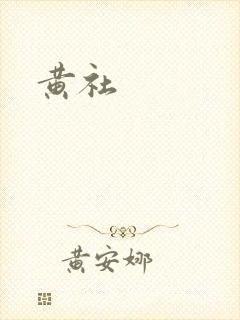 黄社
黄安娜